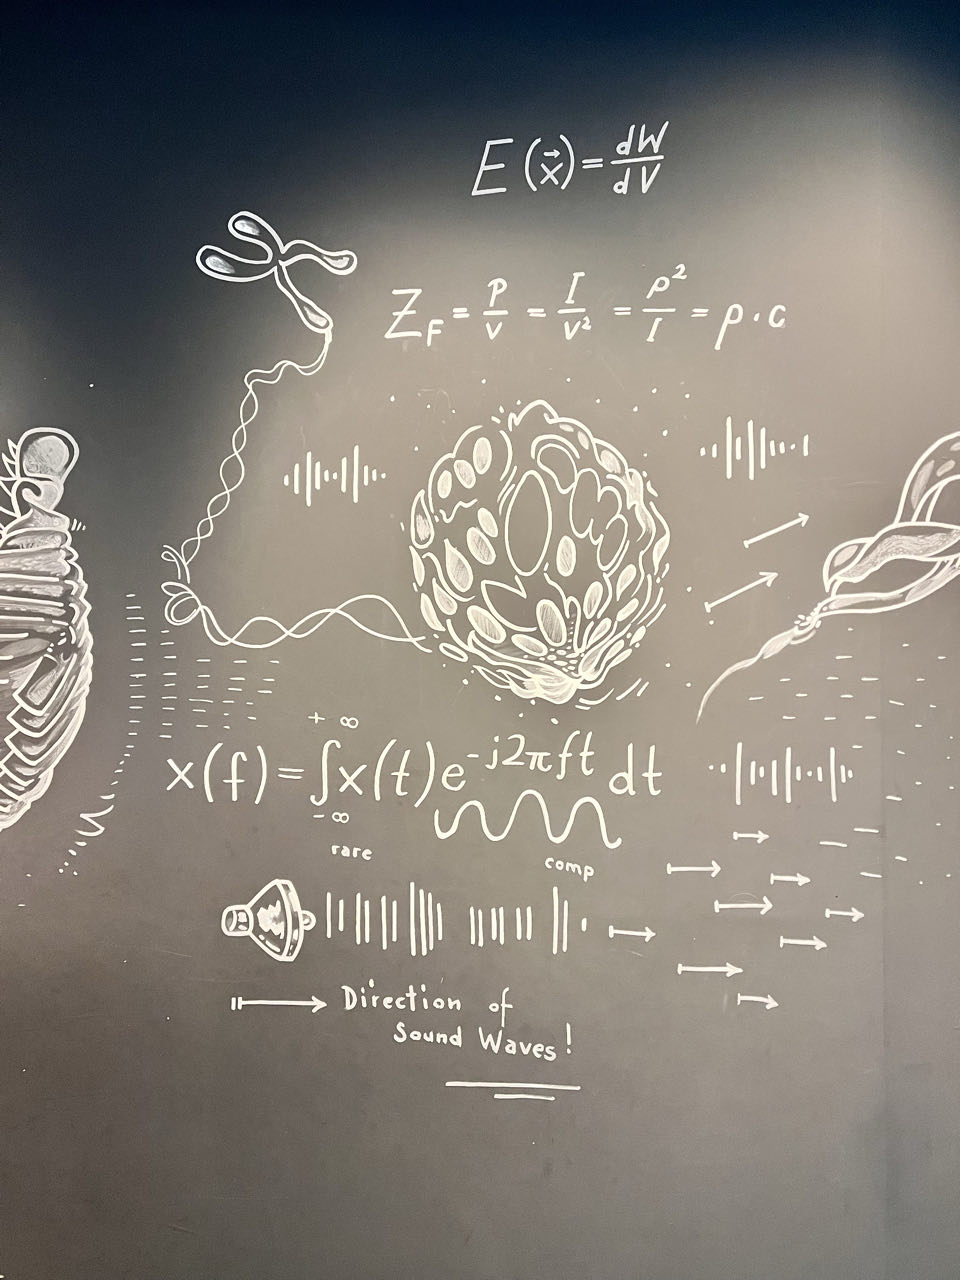 E(x⃗) = dW/dV
Z_F = P/v = I/v² = p²/I = ρ · c
x(f) = ∫_{-∞}^{+∞} x(t) e^{-j2πft} dt
rare
comp
Direction of
Sound Waves!